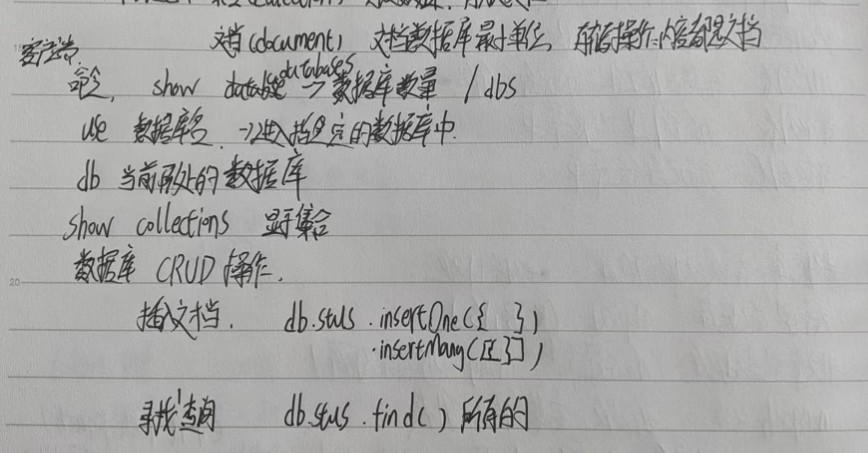 文档(document) 文档数据库最小单位, 所有操作内容都是文档
客户端
命令, show database databases → 数据库数量 / dbs
use 数据库名 → 进入指定的数据库中.
db 当前所处的数据库
show collections 显示集合
数据库 CRUD 操作.
20
插入文档. db.stus.insertOne({ })
.insertMany([{ }])
寻找 查询 db.stus.find() 所有的